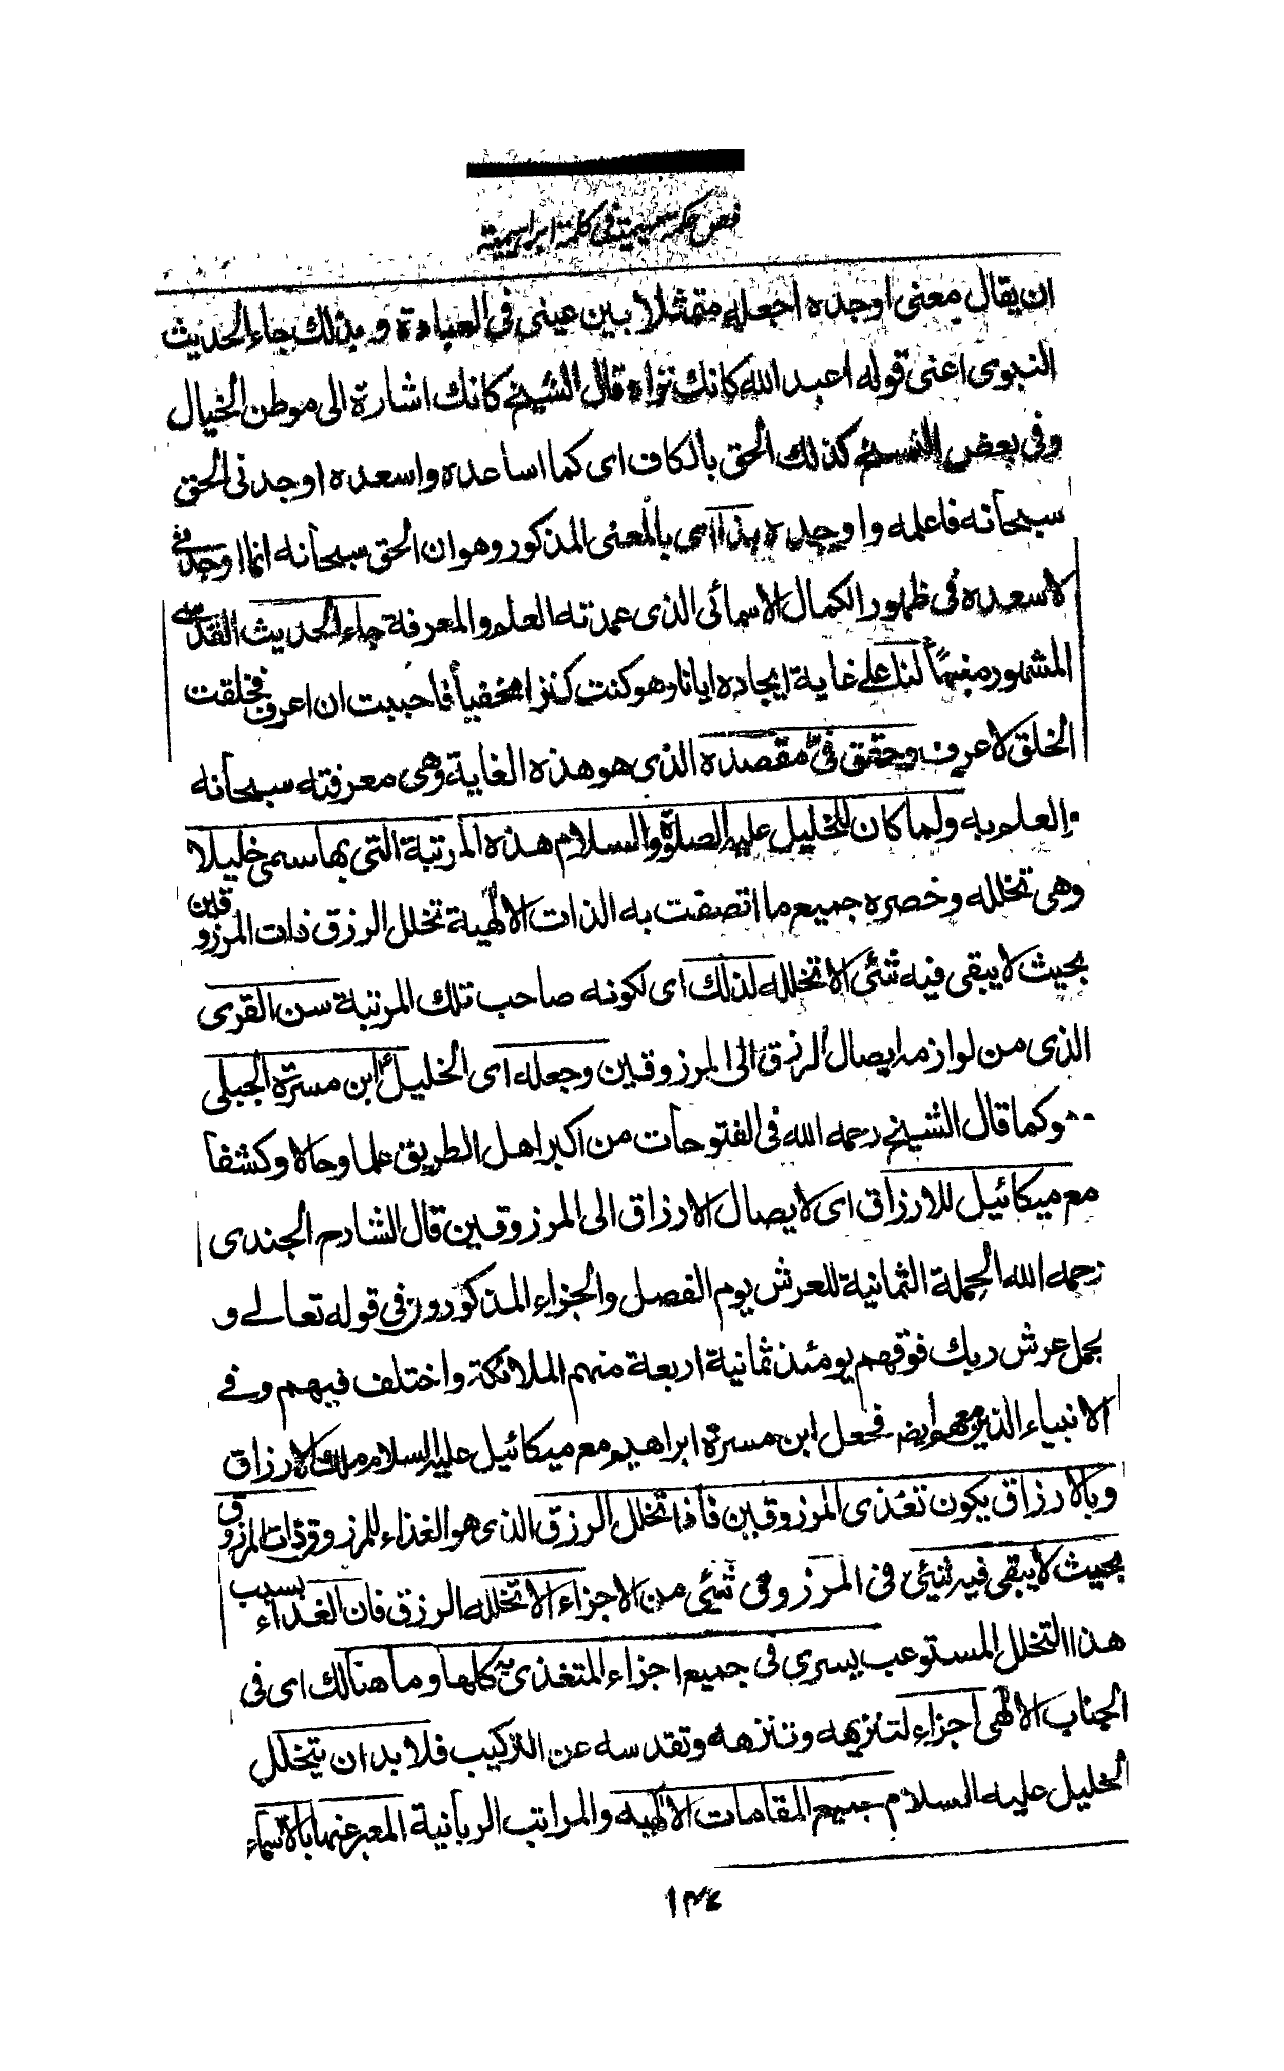 فص حكمة مهيمية في كلمة ابراهيمية
ان يقال معنى اوجده اجعله متمثلا بين عيني في العبادة و بذلك جاء الحديث
النبوى اعنى قوله اعبد الله كانك تراه قال الشيخ كانك اشارة الى موطن الخيال
وفى بعض النسخ كذلك الحق بالكاف اى كما اساعده واسعده اوجدنى الحق
سبحانه فاعلمه واوجده بذا اى بالمعنى المذكور وهو ان الحق سبحانه انما اوجدنى
لاسعده فى ظهور الكمال الاسمائى الذى عمدته العلم والمعرفة جاء الحديث القدسى
المشهور منبها لنا على غاية ايجاده ايانا وهو كنت كنزا مخفيا فاحببت ان اعرف فخلقت
الخلق لاعرف وحقق فىّ مقصده الذى هو هذه الغاية وهى معرفته سبحانه
والعلم به ولما كان للخليل عليه الصلوة والسلام هذه المرتبة التى بها سمى خليلا
وهى تخلله وخصره جميع ما اتصفت به الذات الالٰهية تخلل الرزق ذات المرزوقين
بحيث لا يبقى فيه شئى الا تخلله لذلك اى لكونه صاحب تلك المرتبة سن القرى
الذى من لوازمه ايصال الرزق الى المرزوقين وجعله اى الخليل ابن مسرّة الجبلى
وهو كما قال الشيخ رحمه الله فى الفتوحات من اكبر اهل الطريق علما وحالا وكشفا
مع ميكائيل للارزاق اى لايصال الارزاق الى المرزوقين قال الشارح الجندى
رحمه الله الحملة الثمانية للعرش يوم الفصل والجزاء المذكورون فى قوله تعالے و
يحمل عرش ربك فوقهم يومئذ ثمانية اربعة منهم الملائكة واختلف فيهم وفے
الانبياء الذين معهم ايضا فجعل ابن مسرة ابراهيم مع ميكائيل عليه السلام ملك الارزاق
وبالارزاق يكون تغذى المرزوقين فاذا تخلل الرزق الذى هو الغذاء للمرزوق ذات المرزوق
بحيث لا يبقى فيه شئى فى المرزوق شئى من الاجزاء الا تخلله الرزق فان الغذاء بسبب
هذا التخلل المستوعب يسرى فى جميع اجزاء المتغذى به كلها وما هنالك اى فى
الجناب الالٰهى اجزاء لتنزيهه وتنزهه وتقدسه عن التركيب فلابد ان يتخلل
الخليل عليه السلام جميع المقامات الالٰهيه والمراتب الربانية المعبر عنها بالاسماء
١٣٤